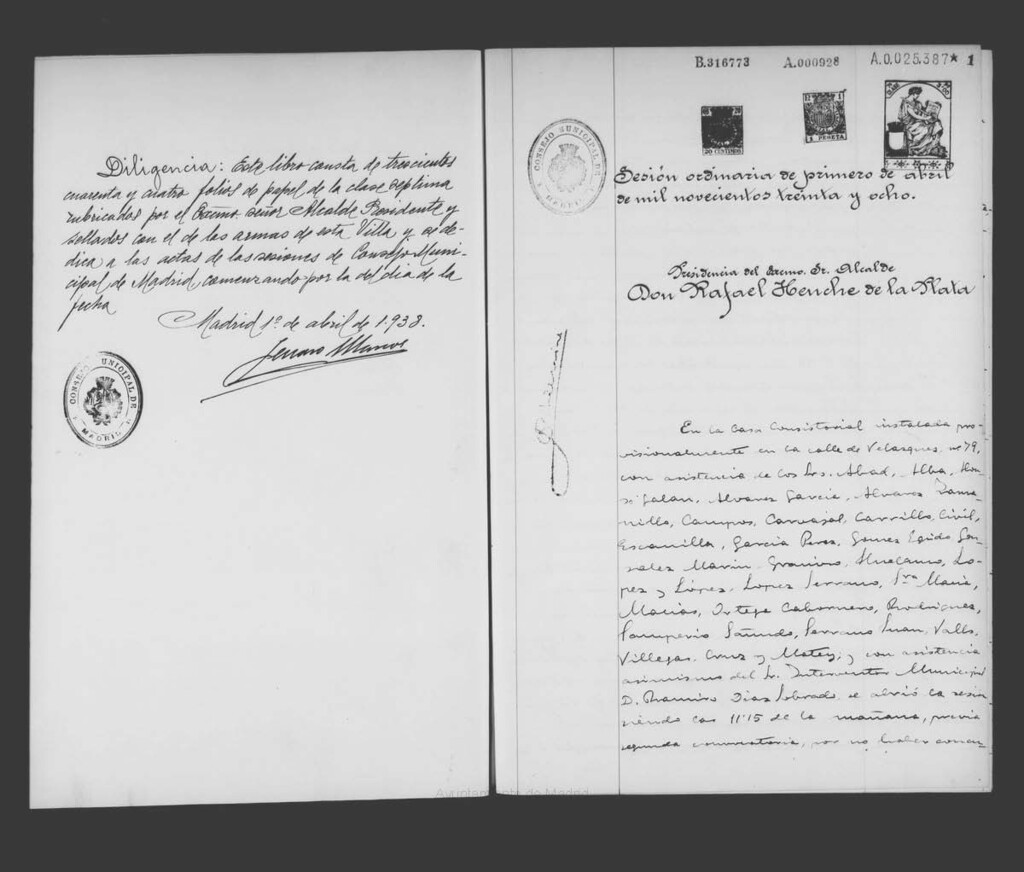 Diligencia: Este libro consta de trescientos
cuarenta y cuatro folios de papel de la clase septima
rubricados por el Excmo. señor Alcalde Presidente y
sellados con el de las armas de esta Villa y se de-
dica a las actas de las sesiones de Consejo Muni-
cipal de Madrid comenzando por la del dia de la
fecha
Madrid 1º de abril de 1.938.
CONSEJO MUNICIPAL DE
MADRID
B.316773 A.000928 A.0.025.387* 1
20 CENTIMOS
1 PESETA
CONSEJO MUNICIPAL DE
MADRID
Sesión ordinaria de primero de abril
de mil novecientos treinta y ocho.
Presidencia del Excmo. Sr. Alcalde
Don Rafael Henche de la Plata
En la Casa Consistorial instalada pro-
visionalmente en la calle de Velazquez, nº 79,
con asistencia de los Srs. Abad, Alba, Alon-
so Galan, Alvarez Garcia, Alvarez
Campos, Carvajal, Carrillo, Civil,
Escanilla, Garcia Perez, Gomez Egido, Gon-
zalez Marin, Huelamo, Lo-
pez y López, Lopez Serrano, Sra
Macias, Ortega, Rodriguez,
Samperio, Serrano, Valls,
Villegas, Cruz y Matey; y con asistencia
asimismo del Sr. Interventor Municipal
D. Ramiro Diaz Lobrado, se abrió la sesión
siendo las 11'15 de la mañana, previa
segunda convocatoria, por no haber concu-
Ayuntamiento de Madrid